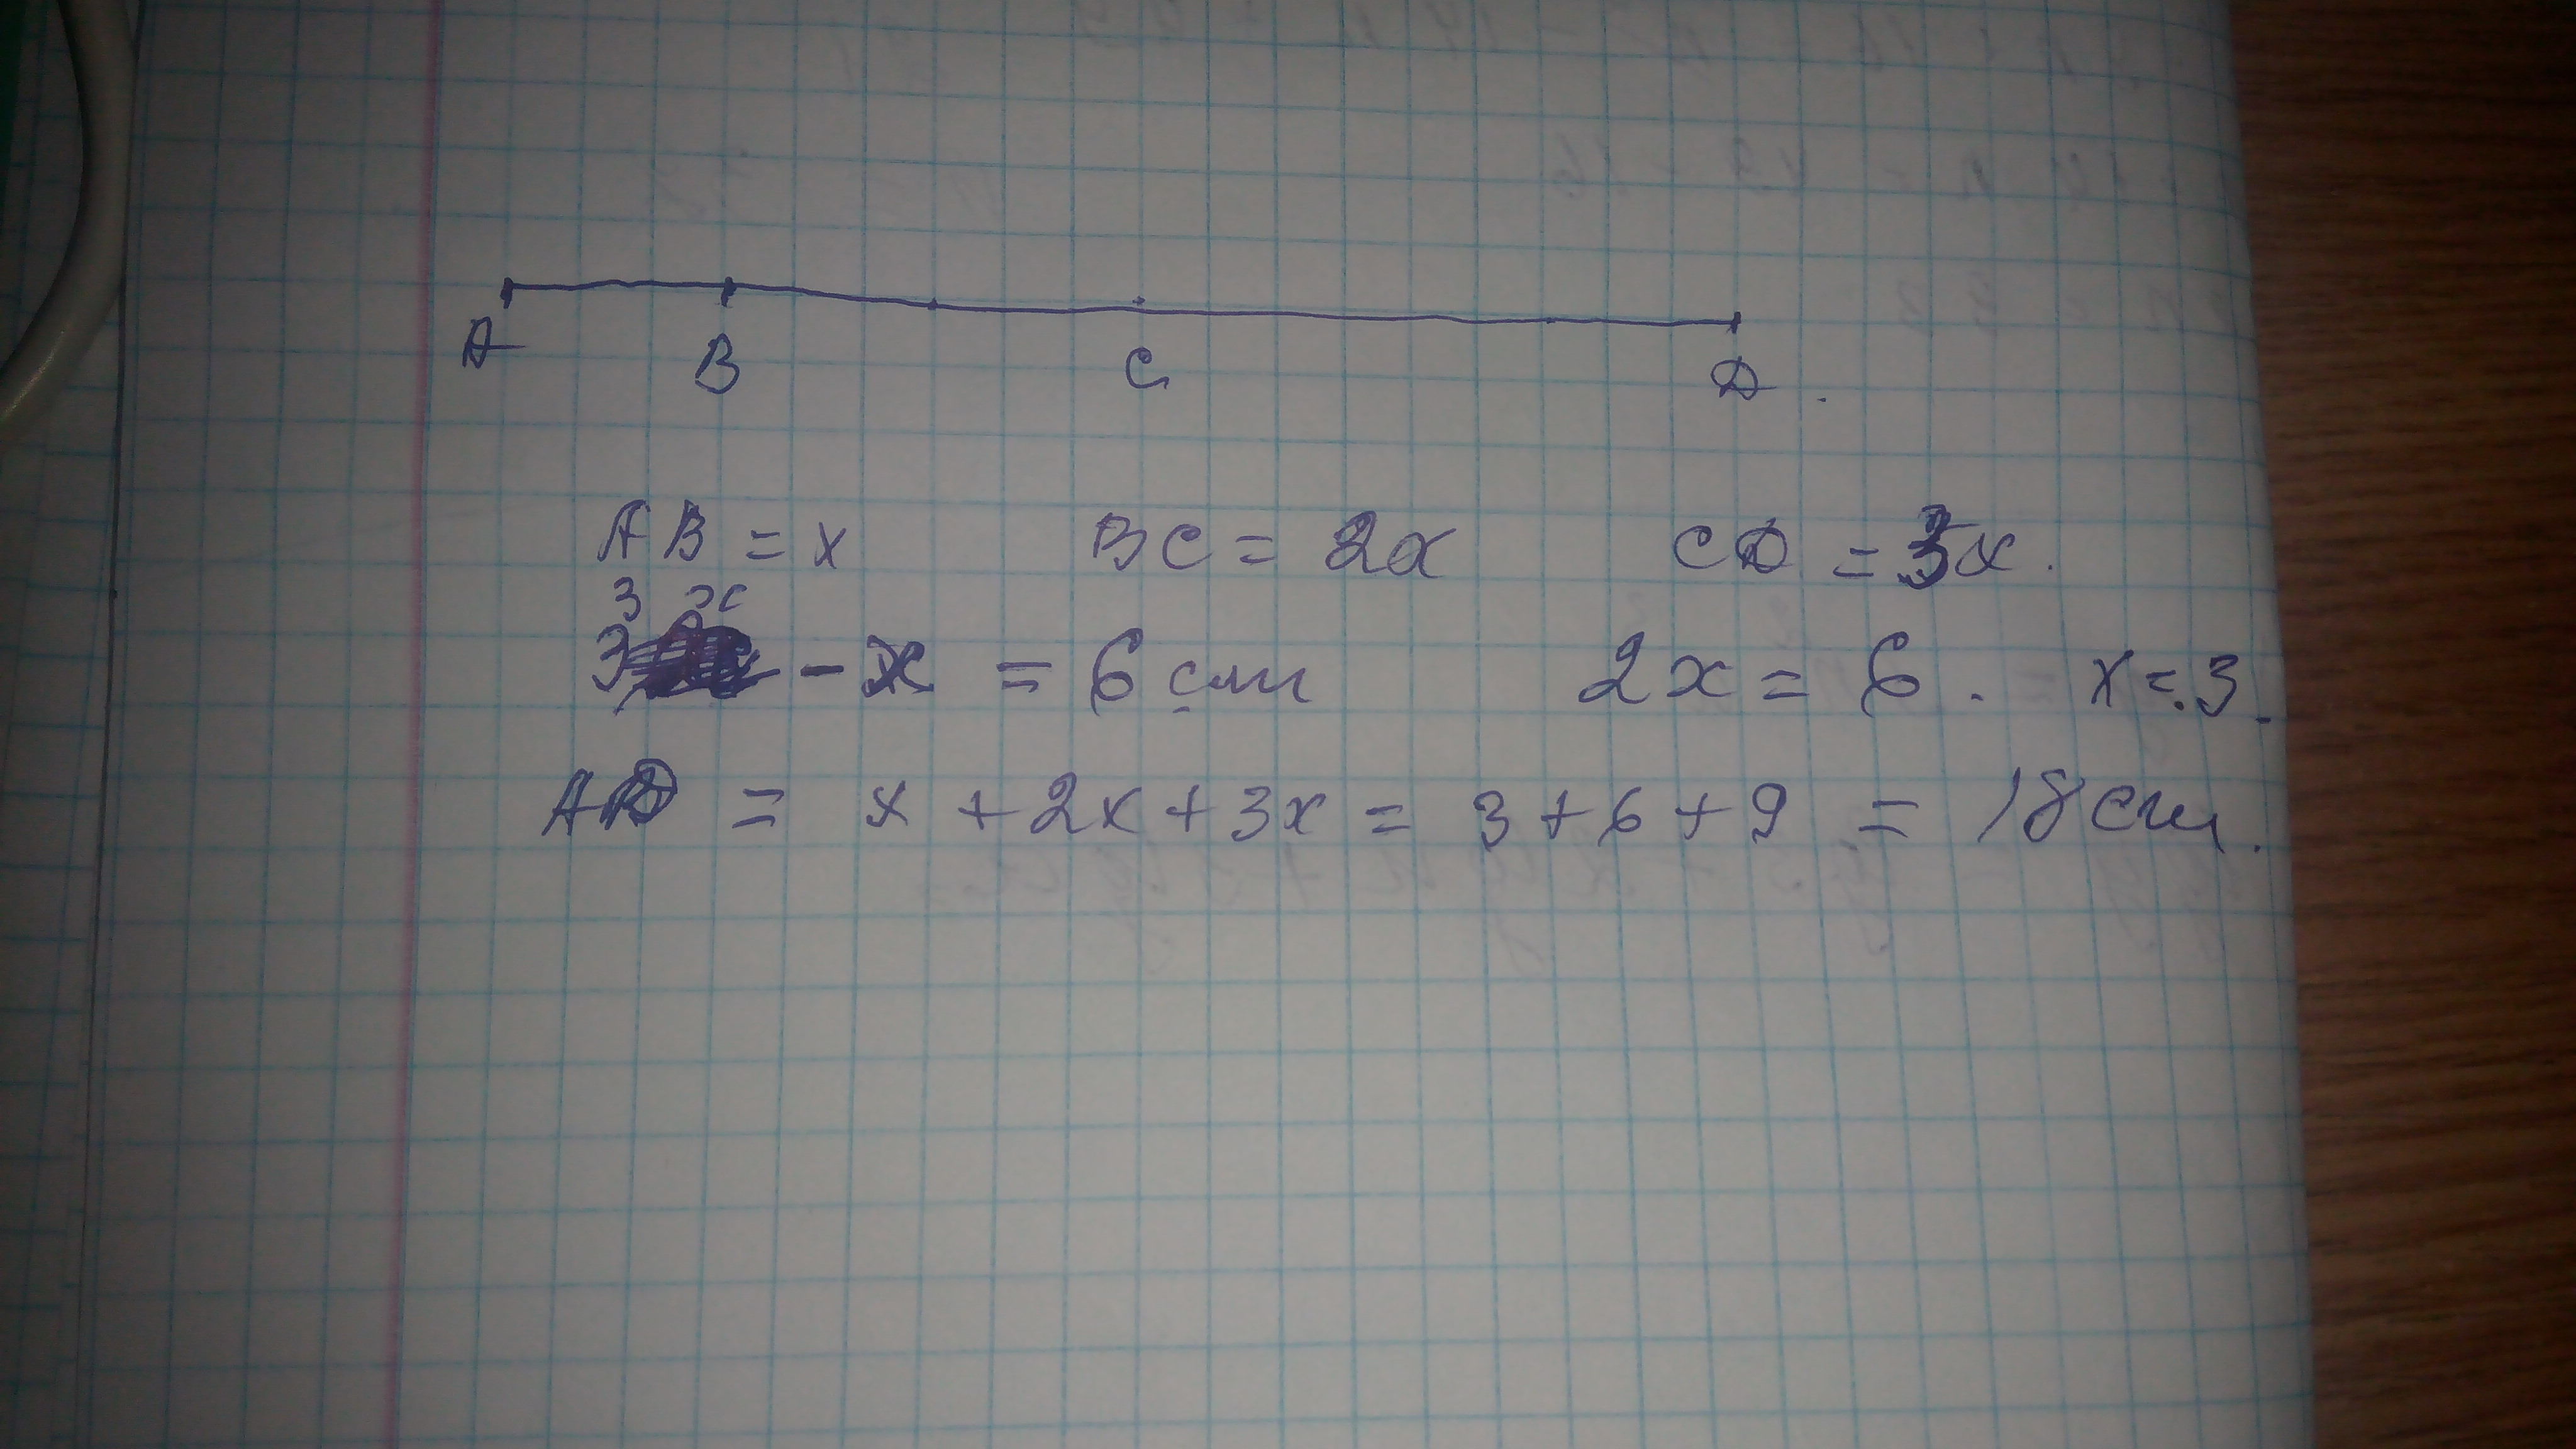 A B C D
AB = x BC = 2x CD = 3x.
3x
3 - x = 6 см 2x = 6. x = 3.
AD = x + 2x + 3x = 3 + 6 + 9 = 18 см.